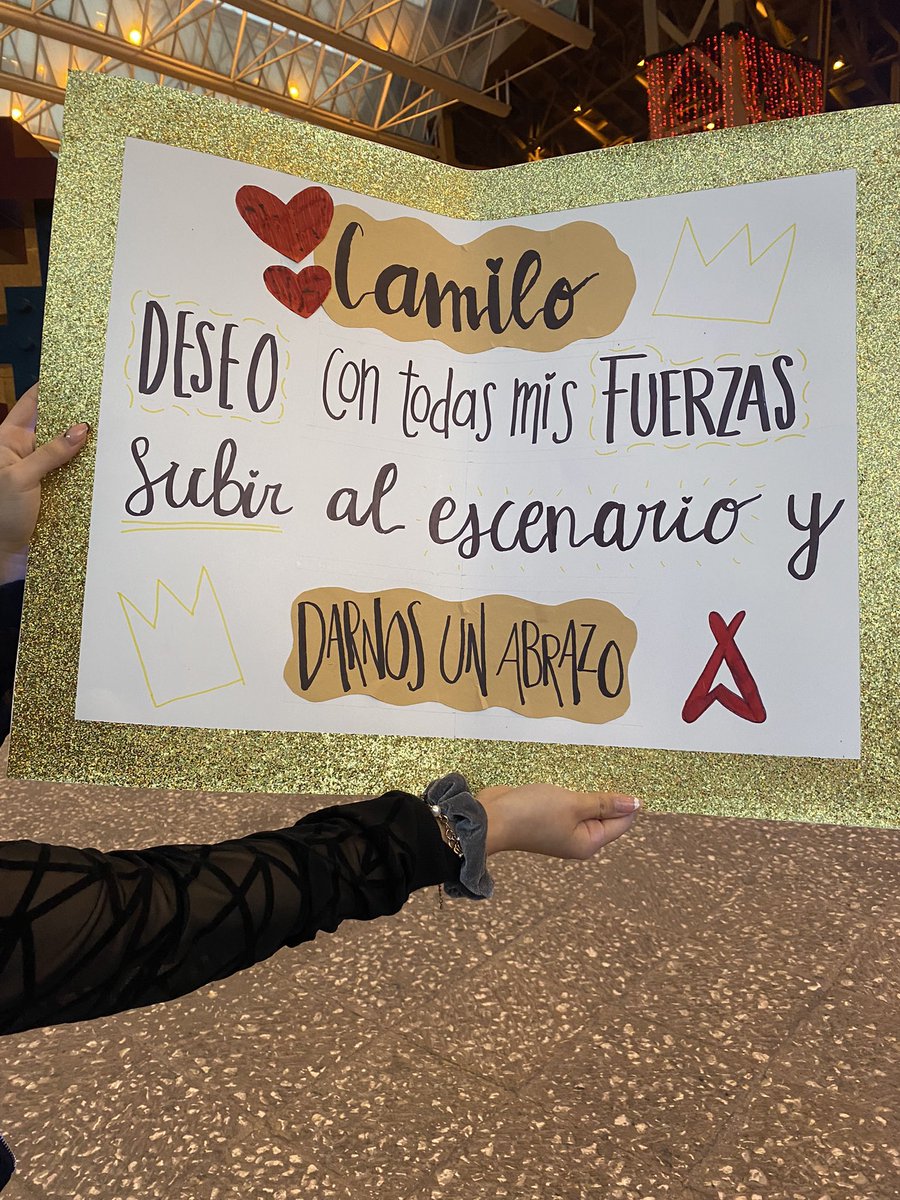 Camilo
DESEO con todas mis FUERZAS
subir al escenario y
DARNOS UN ABRAZO